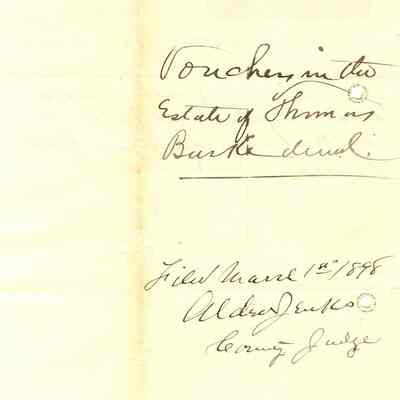 Vouchers in the
Estate of Thomas
Burke decd.
Filed March 1st 1898
Aldro Jenks
County Judge